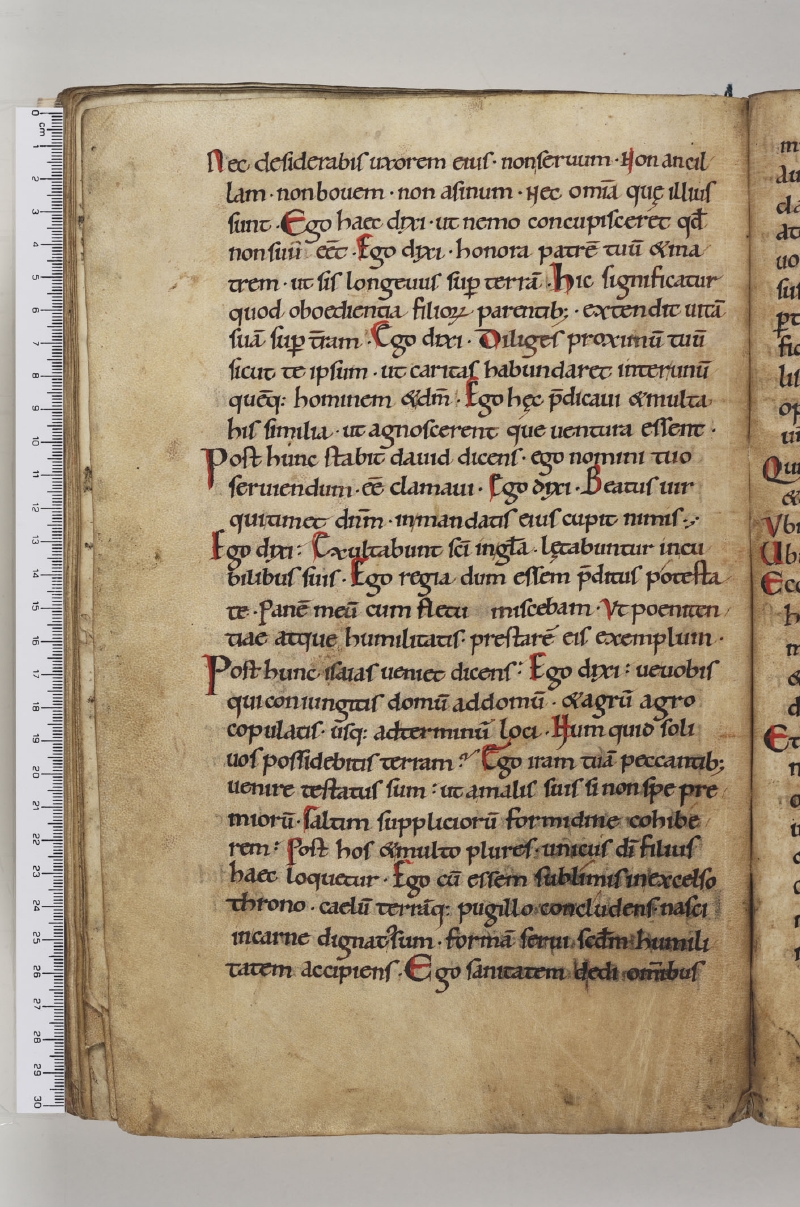 Nec desiderabis uxorem eius · non seruum · Non ancil
lam · non bouem · non asinum · Nec omīa quę illius
sunt · Ego haec dixi · ut nemo concupisceret qđ
non suū eēt · Ego dixi · honora patrē tuū &ma
trem · ut sis longeuus sup̄ terrā · Hic significatur
quod oboedientia filioꝝ parentib; · extendit uitā
suā sup̄ t̄ram · Ego dixi · Diliges proximū tuū
sicut te ipsum · ut caritas habundaret inter unū
quēq: hominem &dm̄ · Ego hęc p̄dicaui &multa
his similia · ut agnoscerent que uentura essent ·
Post hunc stabit dauid dicens · ego nomini tuo
seruiendum · eē clamaui · Ego dixi · Beatus uir
qui timet dnm̄ · in mandatis eius cupit nimis ·
Ego dixi : Exultabunt sc̄i in gl̄a · lętabuntur in cu
bilibus suis · Ego regia dum essem p̄ditus potesta
te · Panē meū cum fletu miscebam · Vt poeniten
tiae atque humilitatis · prestarē eis exemplum ·
Post hunc isaias ueniet dicens : Ego dixi : ue uobis
qui coniungitis domū ad domū · &agrū agro
copulatis · usq: ad terminū loci · Num quid soli
uos possidebitis terram ? Ego iram tuā peccantib;
uenire testatus sum : ut a malis suis si non spe pre
miorū · saltim suppliciorū formidine cohibe
rem : Post hos &multo plures · unicus dī filius
haec loquetur · Ego cū essem sublimis in excelso
throno · caelū terrāq: pugillo concludens · nasci
in carne dignat' sum · formā serui sed̄m humili
tatem accipiens · Ego sanitatem dedi omībus